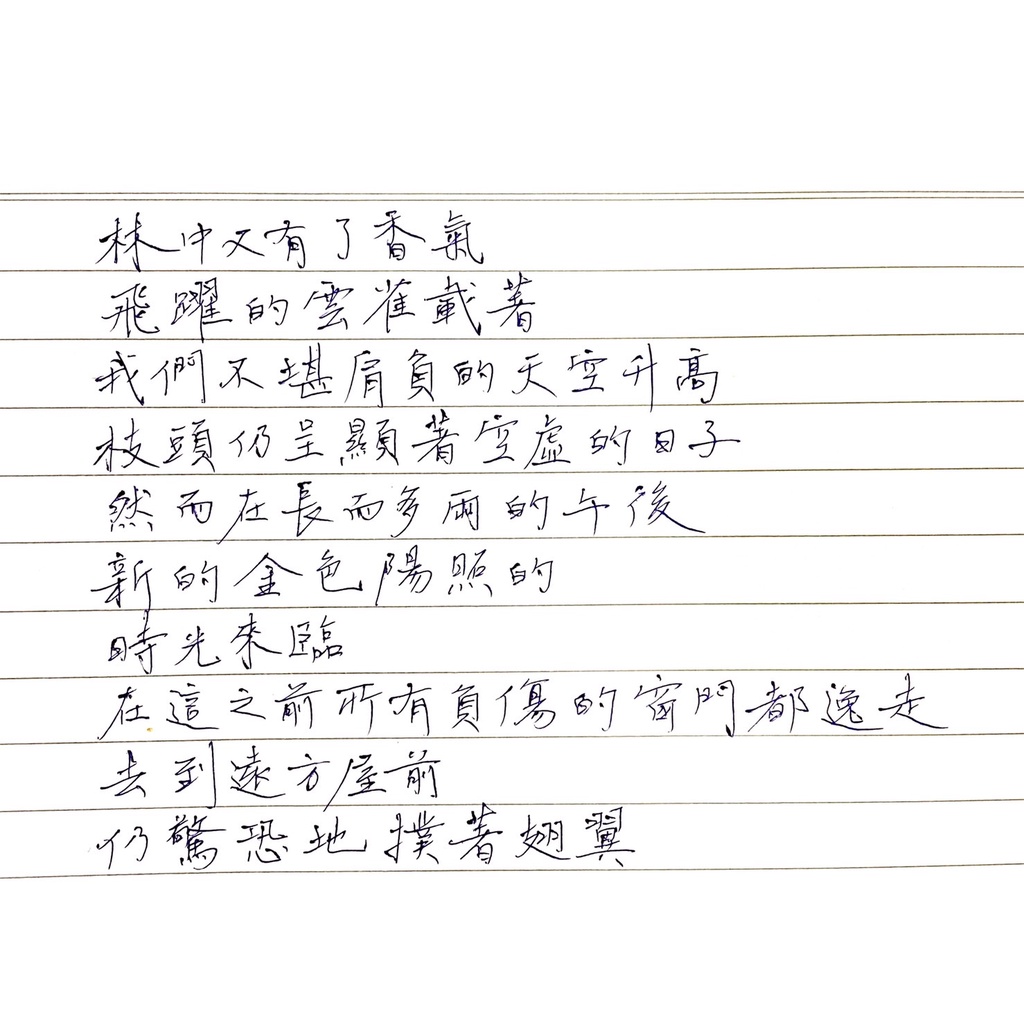 林中又有了香氣
飛躍的雲雀載著
我們不堪肩負的天空升高
枝頭仍呈顯著空虛的日子
然而在長而多雨的午後
新的金色陽照的
時光來臨
在這之前所有負傷的窗門都逸走
去到遠方屋前
仍驚恐地撲著翅翼